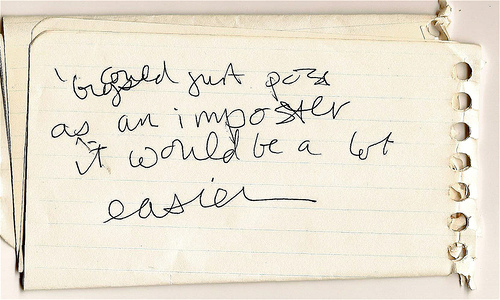 could just pass
as an imposter
it would be a lot
easier